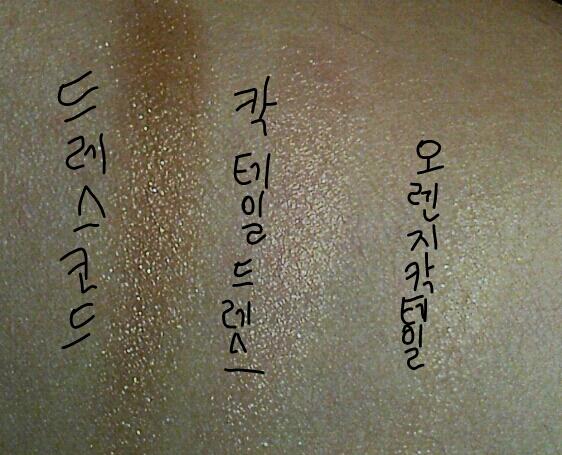 드레스코드
칵테일드레스
오렌지칵테일